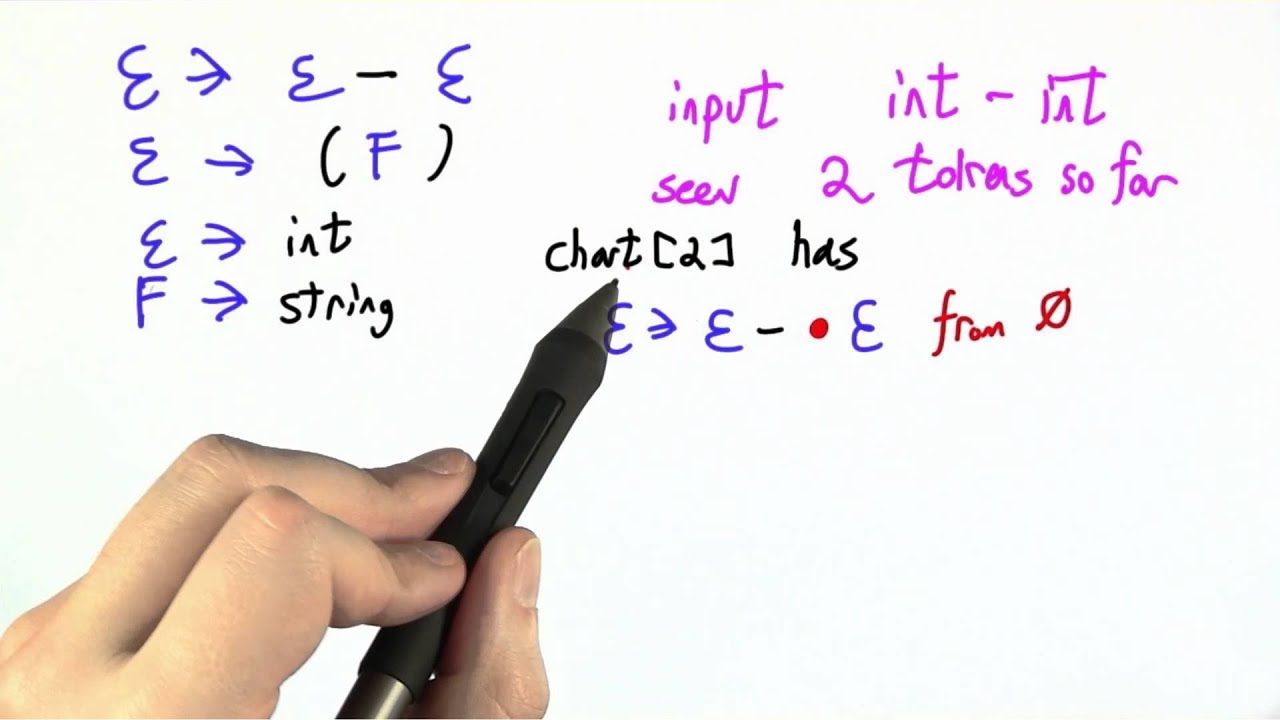 Ɛ → Ɛ - Ɛ
Ɛ → (F)
Ɛ → int
F → string
input int - int
seen 2 tokens so far
chart[2] has
Ɛ → Ɛ - • Ɛ from Ø